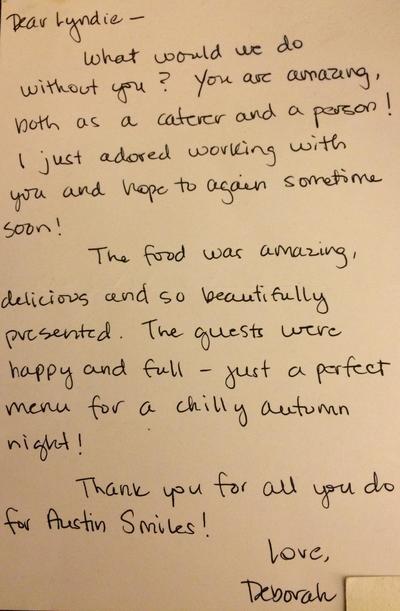 Dear Lyndie –
What would we do
without you? You are amazing,
both as a caterer and a person!
I just adored working with
you and hope to again sometime
soon!
The food was amazing,
delicious and so beautifully
presented. The guests were
happy and full – just a perfect
menu for a chilly autumn
night!
Thank you for all you do
for Austin Smiles!
Love,
Deborah